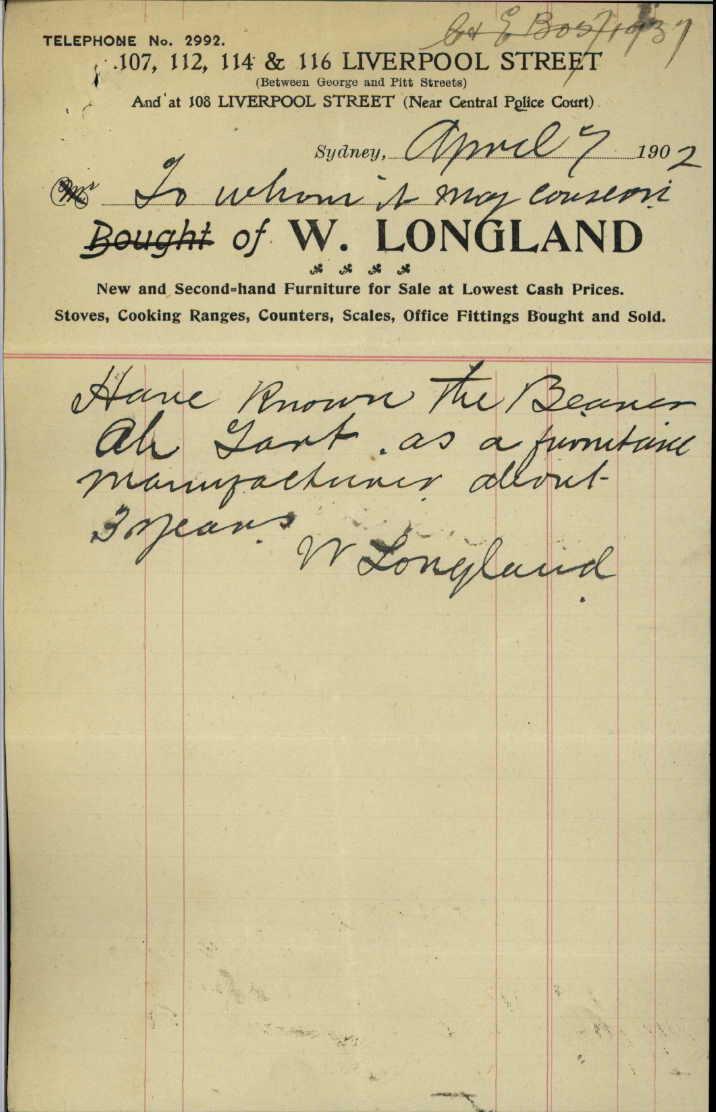 TELEPHONE No. 2992.
107, 112, 114 & 116 LIVERPOOL STREET
(Between George and Pitt Streets)
And at 108 LIVERPOOL STREET (Near Central Police Court)
Sydney, April 7 1902
Mr To whom it may concern
Bought of W. LONGLAND
New and Second-hand Furniture for Sale at Lowest Cash Prices.
Stoves, Cooking Ranges, Counters, Scales, Office Fittings Bought and Sold.
Have known the Bearer
Ah Gart. as a furniture
manufacturer about
3 years
W Longland